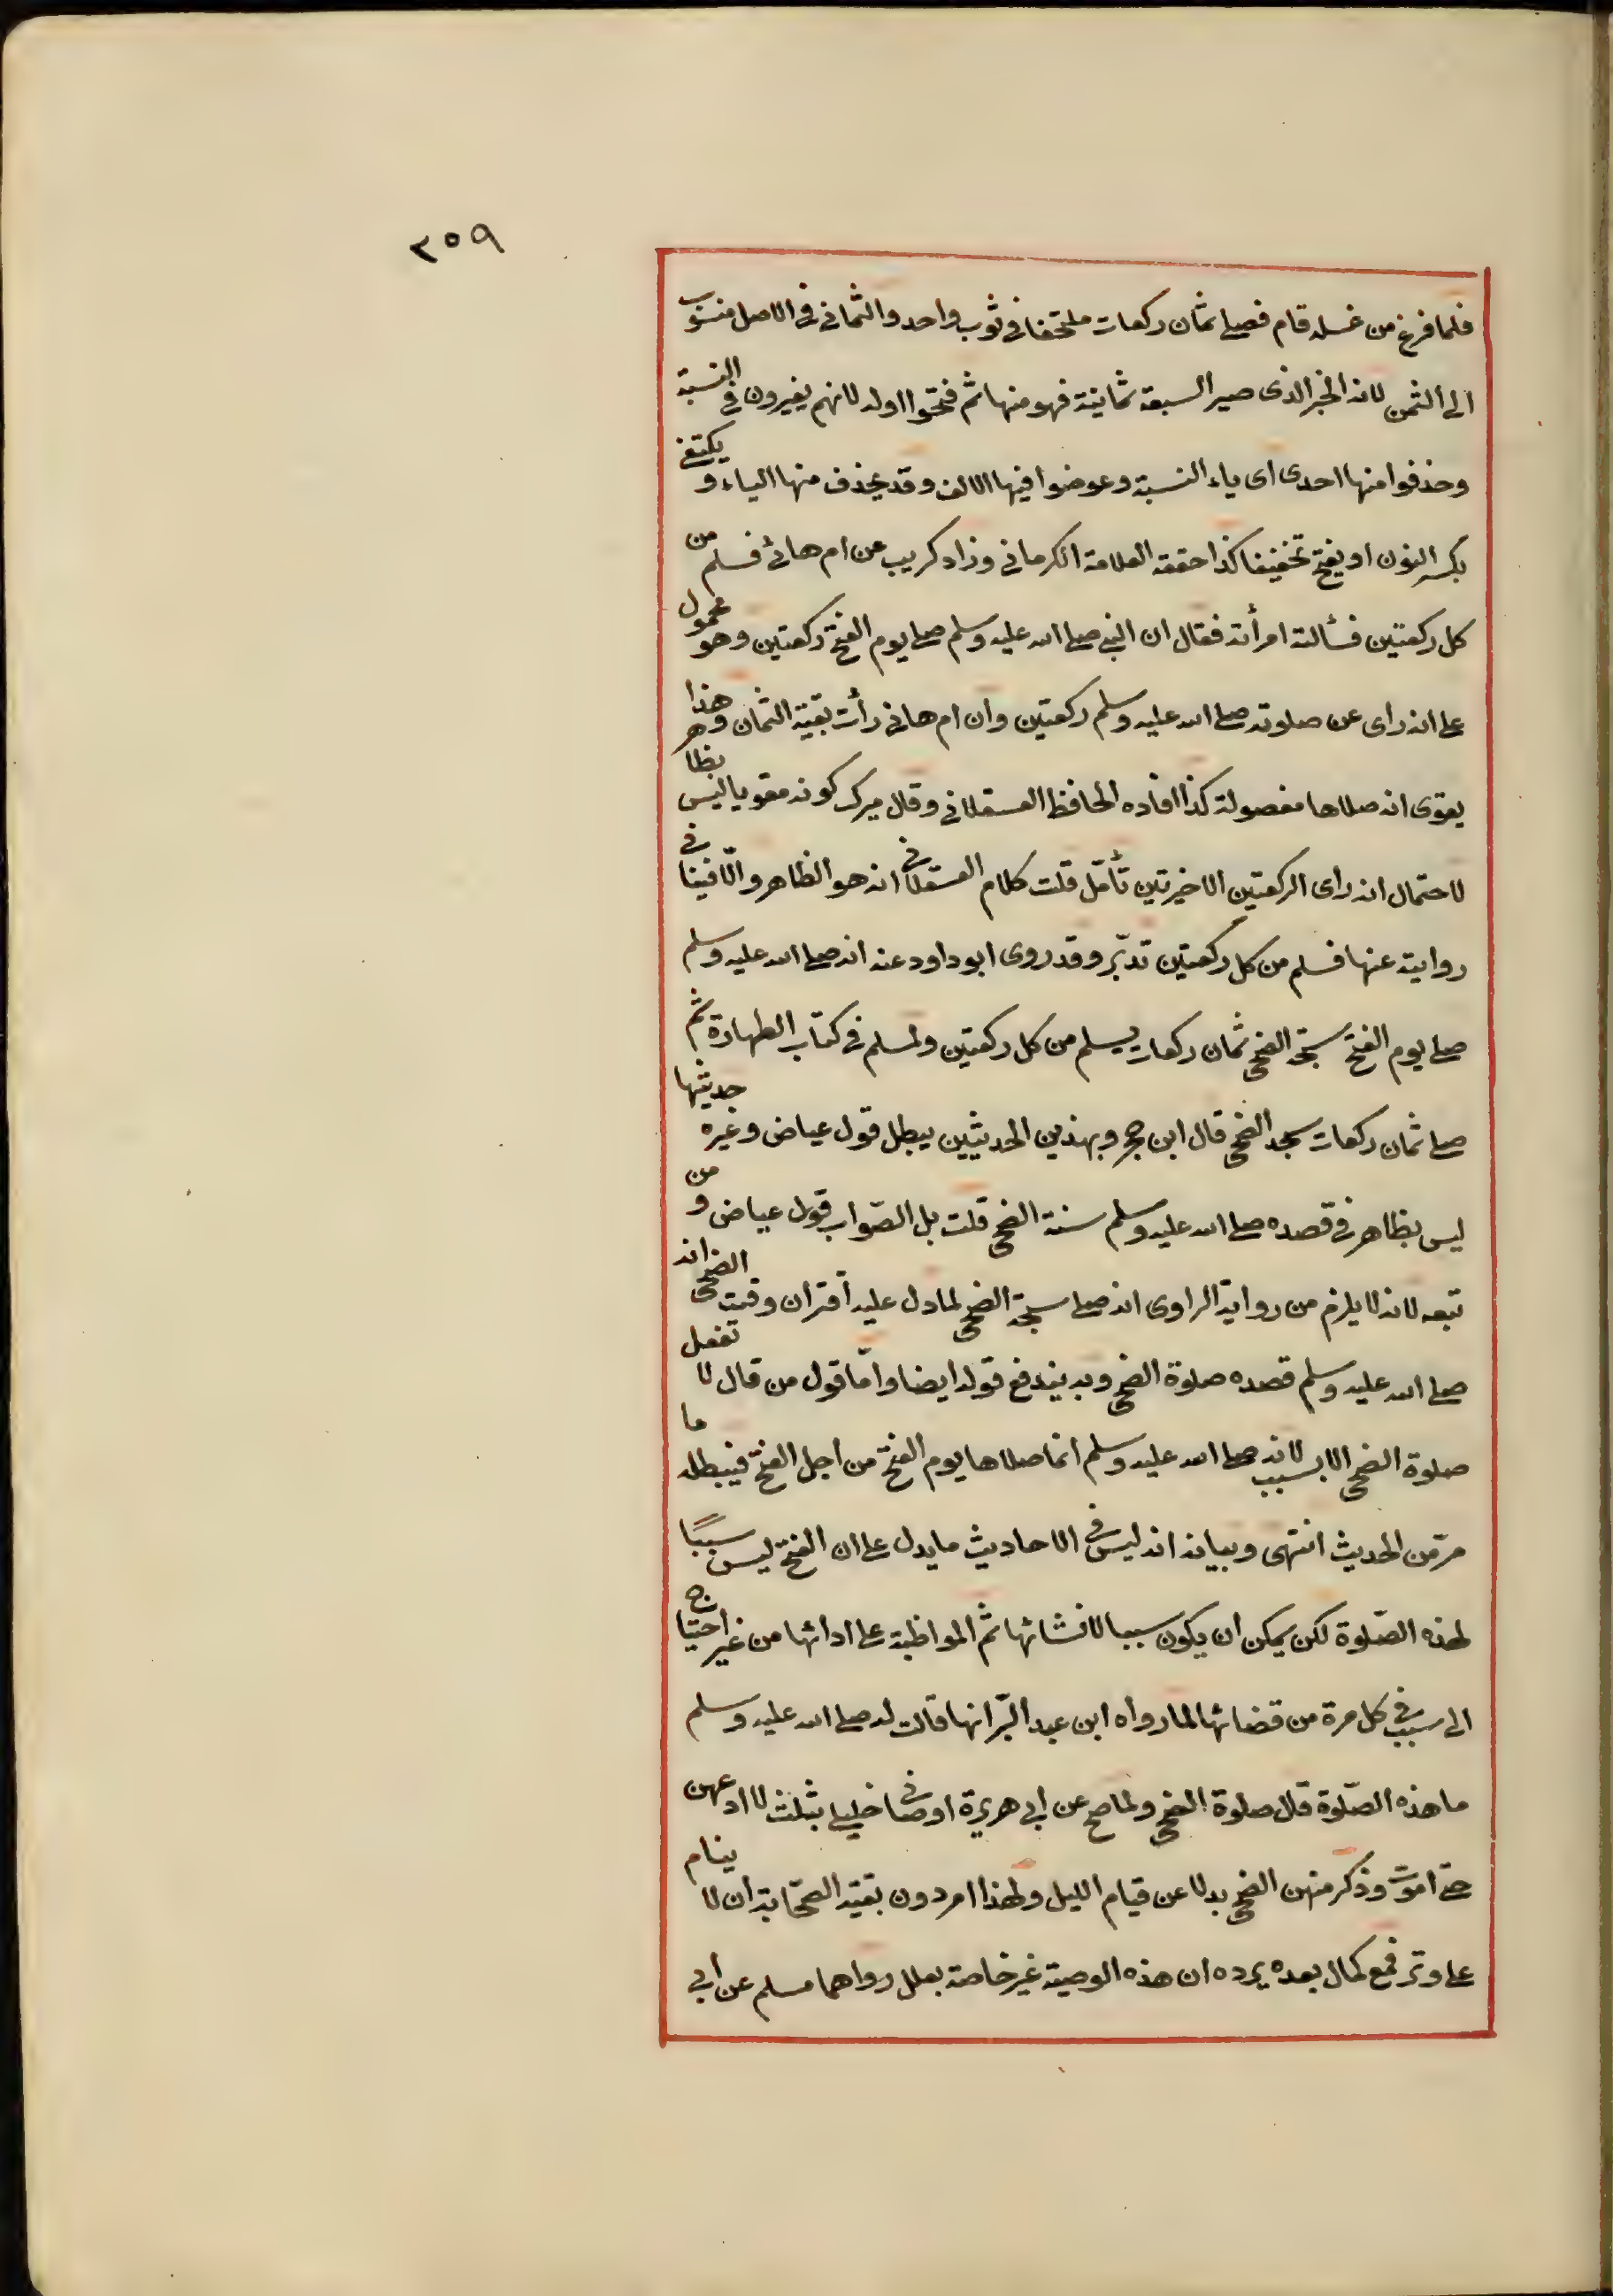 ٣٥٩
فلما فرغ من غسله قام فصلى ثمان ركعات ملتحفا في ثوب واحد والثماني في الاصل منسوب
الى الثمن لانه الجزء الذى صير السبعة ثمانية فهو منها ثم فتحوا اوله لانهم يغيرون في النسبة
وحذفوا منها احدى اى ياء النسبة وعوضوا فيها الالف وقد يحذف منها الياء ويكتفى
بكسر النون او يفتح تخفيفا كذا حققه العلامة الكرماني وزاد كريب عن ام هانئ فسلم من
كل ركعتين فسألته امرأته فقال ان النبي صلى الله عليه وسلم صلى يوم الفتح ركعتين وهو محمول
على انه راى عن صلوته صلى الله عليه وسلم ركعتين وان ام هانى رأت بقية الثمان وهذا
يقوى انه صلاها مفصولة كذا افاده الحافظ العسقلاني وقال ميرك كونه مقويا ليس بظاهر
لاحتمال انه راى الركعتين الاخيرتين تأمل قلت كلام العسقلاني انه هو الظاهر والا فينافي
رواية عنها فسلم من كل ركعتين تدبر وقد روى ابو داود عنه انه صلى الله عليه وسلم
صلى يوم الفتح سبحة الضحى ثمان ركعات يسلم من كل ركعتين ولمسلم في كتاب الطهارة ثم
صلى ثمان ركعات سبحة الضحى قال ابن حجر وبهذين الحديثين يبطل قول عياض وغيره حديثها
ليس بظاهر في قصده صلى الله عليه وسلم سنة الضحى قلت بل الصواب قول عياض ومن
تبعه لانه لا يلزم من رواية الراوى انه صلى سبحة الضحى لما دل عليه اقتران وقت الضحى انه
صلى الله عليه وسلم قصده صلوة الضحى وبه يندفع قوله ايضا واما قول من قال لا تفعل
صلوة الضحى الا بسبب لانه صلى الله عليه وسلم انما صلاها يوم الفتح من اجل الفتح فيبطله ما
مر من الحديث انتهى وبيانه انه ليس في الاحاديث ما يدل على ان الفتح ليس سببًا
لهذه الصلوة لكن يمكن ان يكون سببا لانشائها ثم المواظبة على ادائها من غير احتياج
الى سبب في كل مرة من قضائها لما رواه ابن عبد البر انها قالت له صلى الله عليه وسلم
ما هذه الصلوة قال صلوة الضحى ولما صح عن ابي هريرة اوصاني خليلي بثلث لا ادعهن
حتى اموت وذكر منهن الضحى بدلا عن قيام الليل ولهذا امر دون بقية الصحابة ان لا ينام
على وتر فمع كمال بعده يرده ان هذه الوصية غير خاصة بعلل رواهما مسلم عن ابي